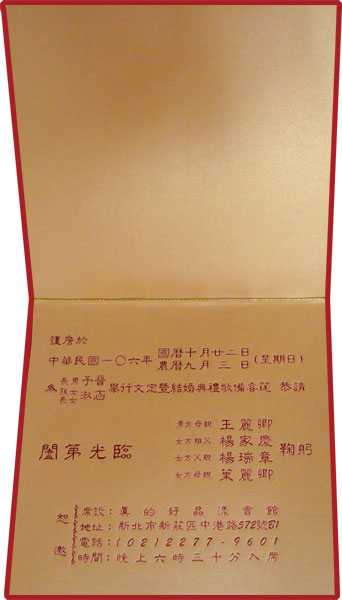 謹詹於
中華民國一〇六年 國曆十月廿二日 (星期日)
農曆九月三日
為 長男 子晉 舉行文定暨結婚典禮敬備喜筵 恭請
孫女
長女 淑涵
闔第光臨
男方母親 王麗卿
女方祖父 楊家慶
女方父親 楊瑞章
女方母親 葉麗卿
鞠躬
恕邀
席設：真的好晶漾會館
地址：新北市新莊區中港路572號B1
電話：(02)2277-9601
時間：晚上六時三十分入席